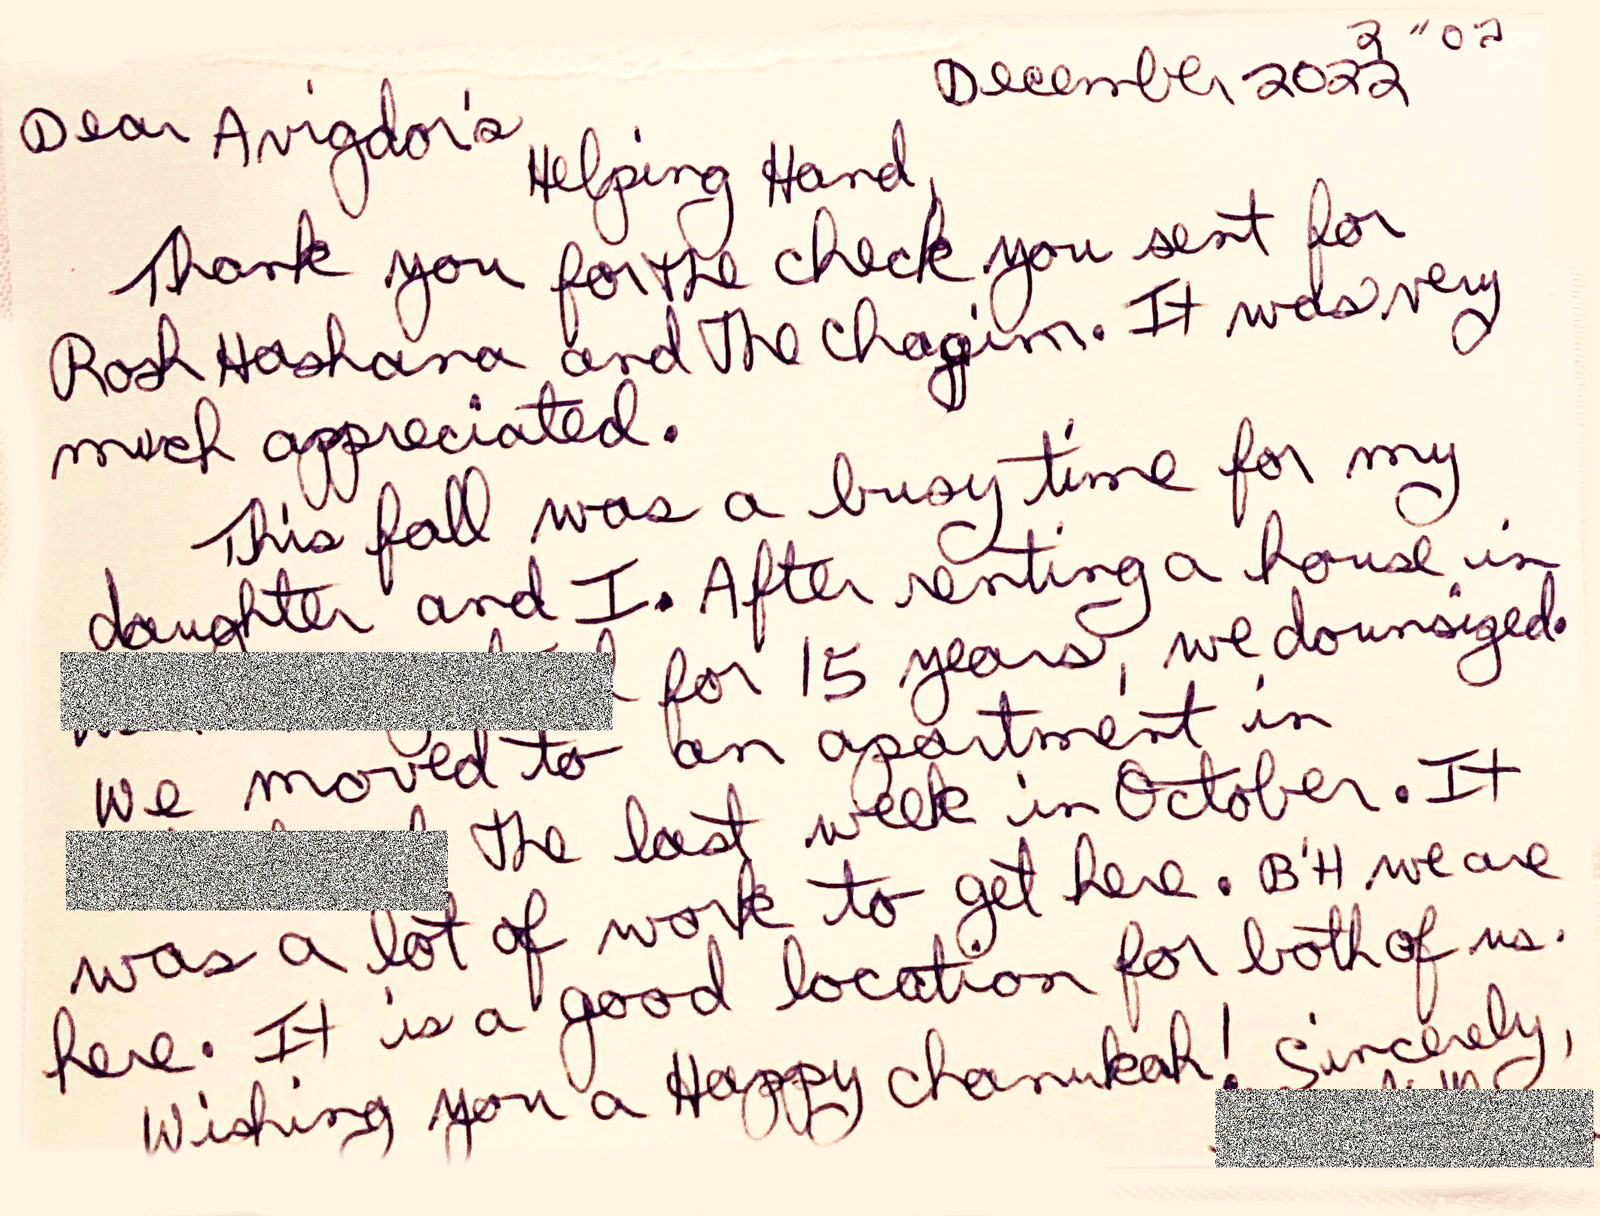 בס"ד
December 2022
Dear Avigdor's
Helping Hand,
Thank you for the check you sent for
Rosh Hashana and The Chagim. It was very
much appreciated.
This fall was a busy time for my
daughter and I. After renting a house in
for 15 years, we downsized.
We moved to an apartment in
The last week in October. It
was a lot of work to get here. B'H we are
here. It is a good location for both of us.
Wishing you a Happy Chanukah! Sincerely,